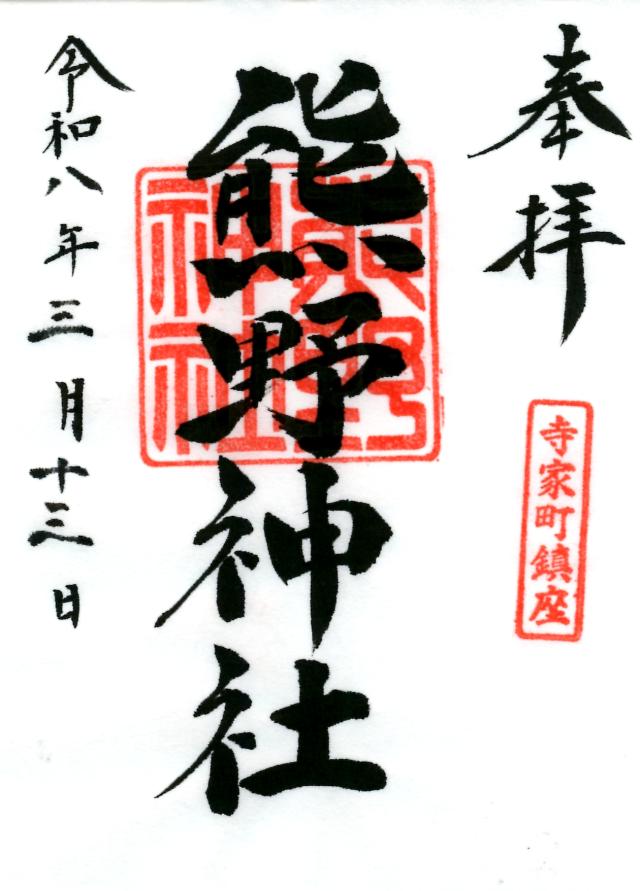 奉拝
寺家町鎮座
熊野神社
熊野神社
令和八年三月十三日